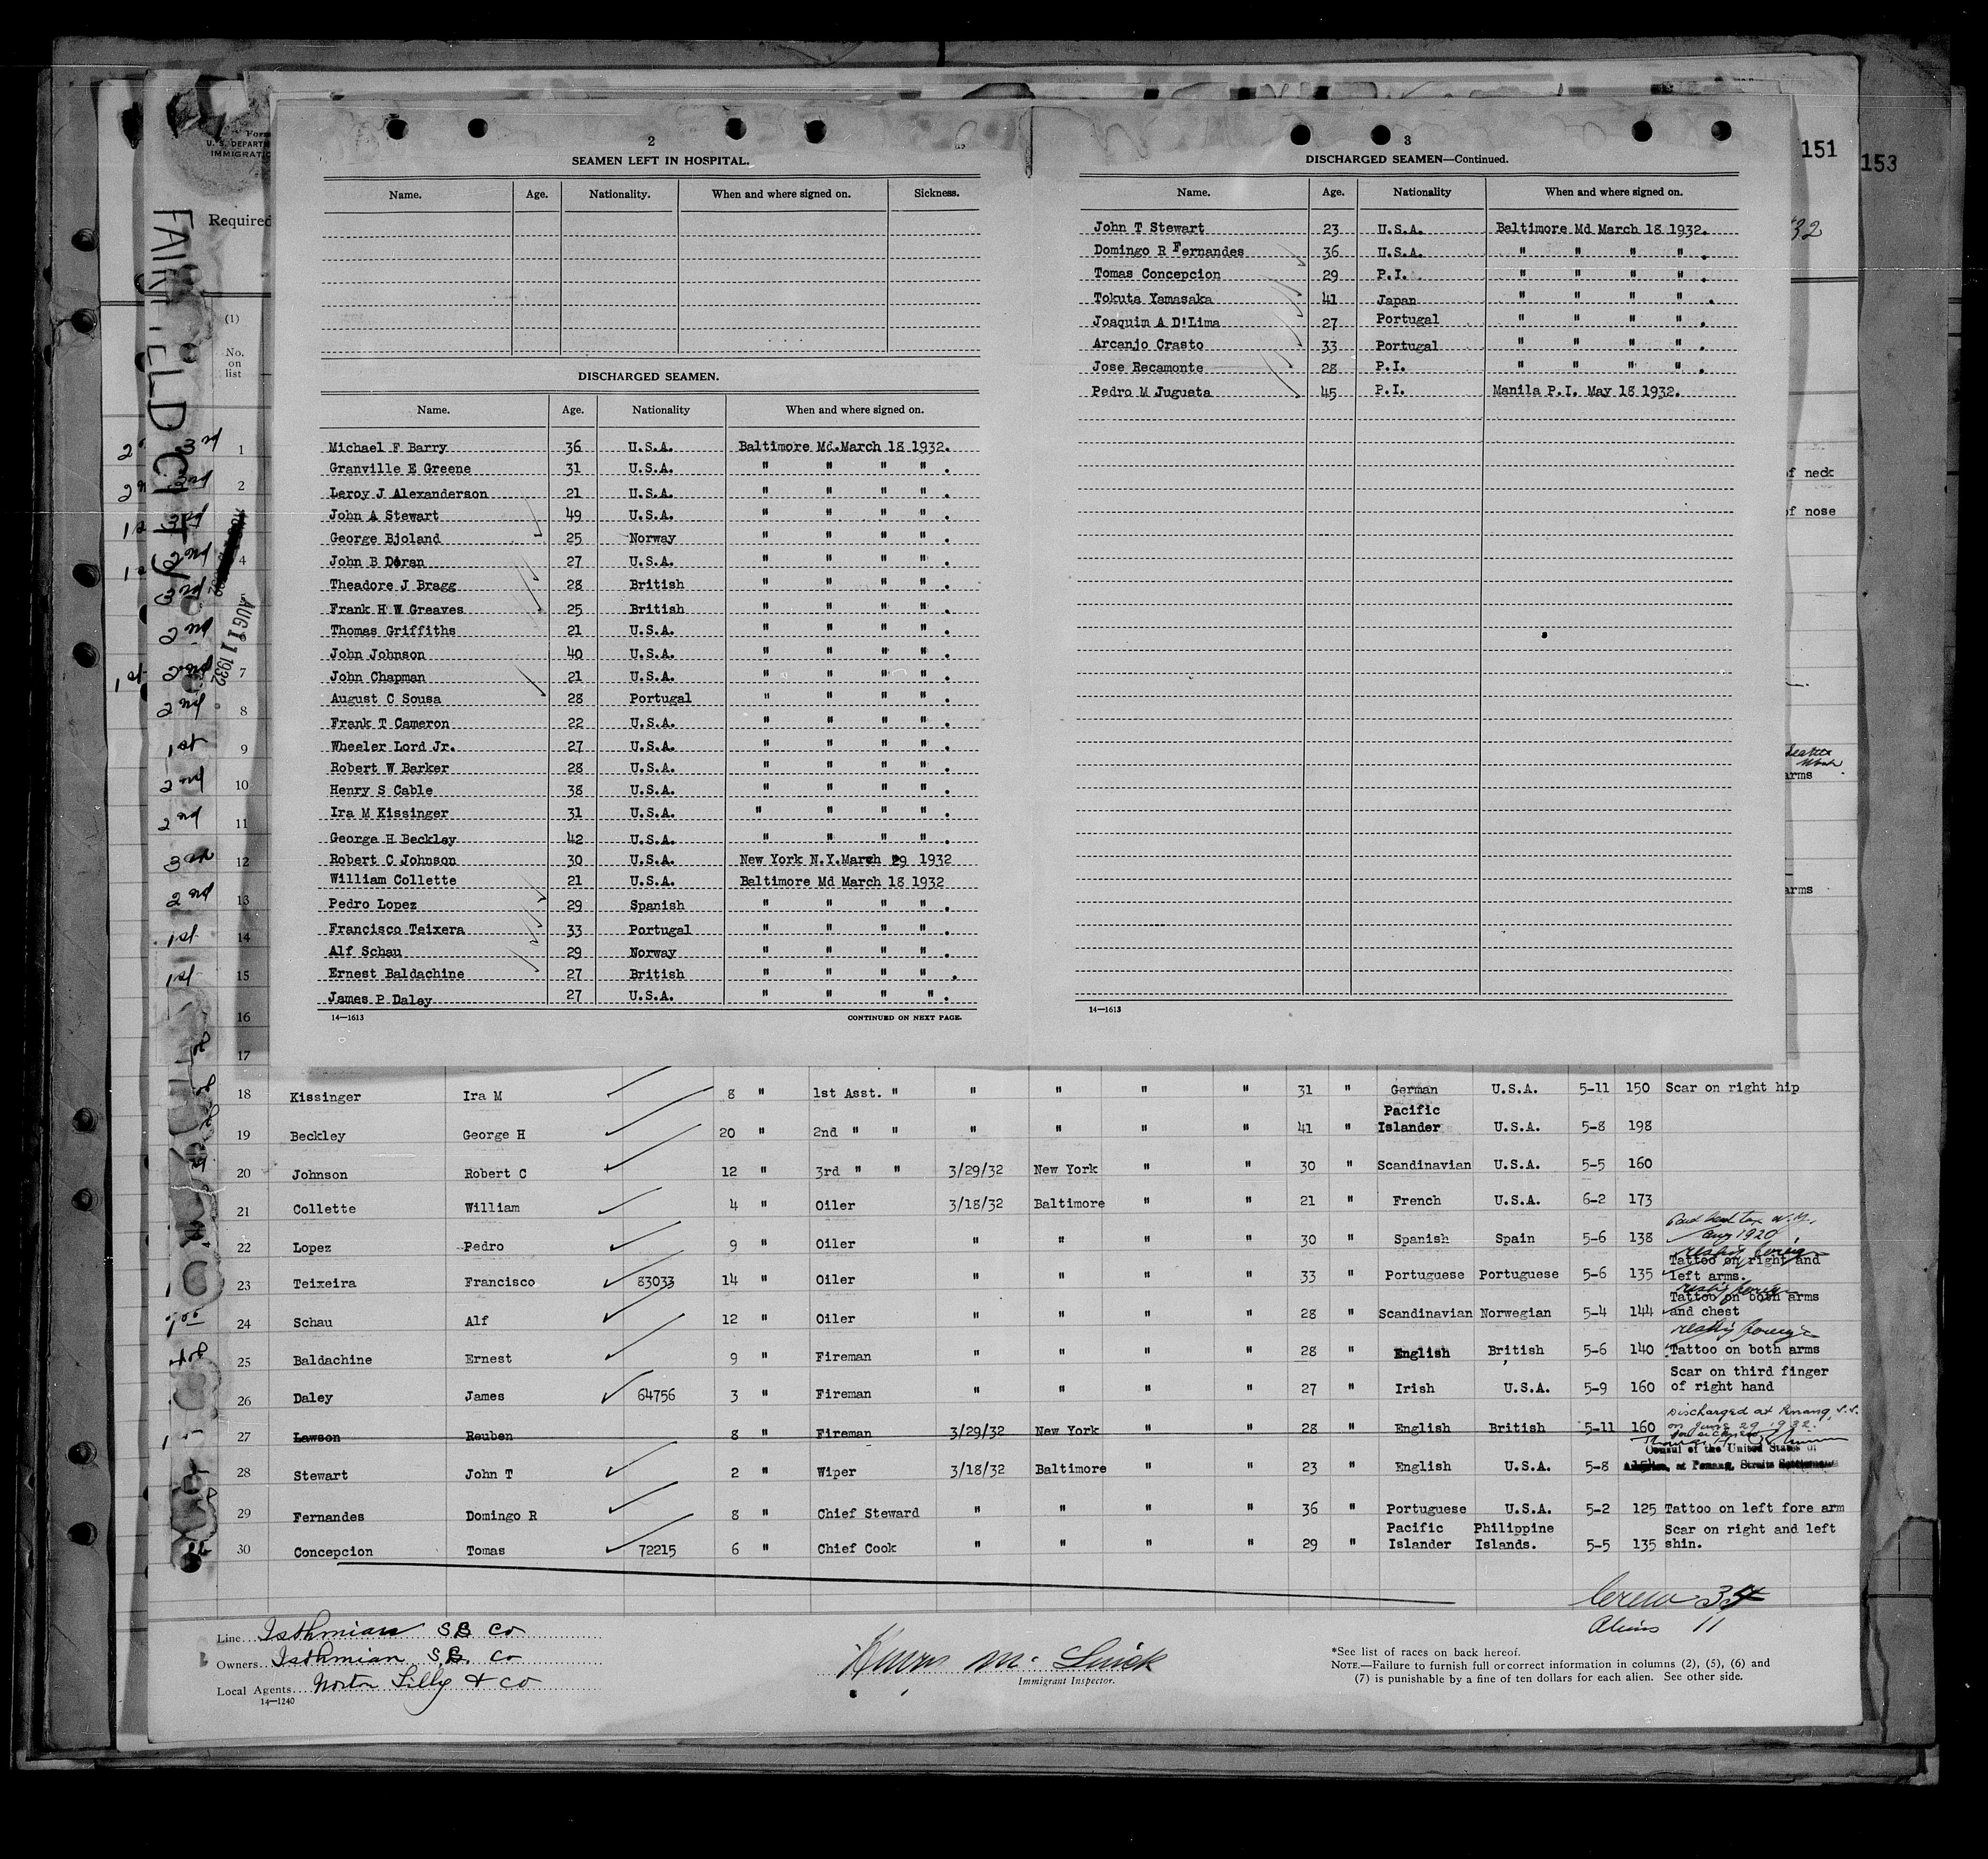 151
153
Form
U. S. DEPARTM
IMMIGRATIO
Required
FAIRFIELD CITY
AUG 11 1932
(1)
No.
on
list
2
SEAMEN LEFT IN HOSPITAL.
Name. Age. Nationality. When and where signed on. Sickness.
DISCHARGED SEAMEN.
Name. Age. Nationality When and where signed on.
Michael F Barry 36 U.S.A. Baltimore Md.March 18 1932.
Granville E Greene 31 U.S.A. " " " " .
Leroy J Alexanderson 21 U.S.A. " " " " .
John A Stewart 49 U.S.A. " " " " .
George Bjoland 25 Norway " " " " .
John B Doran 27 U.S.A. " " " " .
Theadore J Bragg 28 British " " " " .
Frank H W Greaves 25 British " " " " .
Thomas Griffiths 21 U.S.A. " " " " .
John Johnson 40 U.S.A. " " " " .
John Chapman 21 U.S.A. " " " " .
August C Sousa 28 Portugal " " " " .
Frank T Cameron 22 U.S.A. " " " " .
Wheeler Lord Jr. 27 U.S.A. " " " " .
Robert W Barker 28 U.S.A. " " " " .
Henry S Cable 38 U.S.A. " " " " .
Ira M Kissinger 31 U.S.A. " " " " .
George H Beckley 42 U.S.A. " " " " .
Robert C Johnson 30 U.S.A. New York N.Y.March 29 1932
William Collette 21 U.S.A. Baltimore Md March 18 1932
Pedro Lopez 29 Spanish " " " " .
Francisco Teixera 33 Portugal " " " " .
Alf Schau 29 Norway " " " " .
Ernest Baldachine 27 British " " " " .
James P Daley 27 U.S.A. " " " " .
14—1613 CONTINUED ON NEXT PAGE.
3
DISCHARGED SEAMEN—Continued.
Name. Age. Nationality When and where signed on.
John T Stewart 23 U.S.A. Baltimore Md March 18 1932.
Domingo R Fernandes 36 U.S.A. " " " " .
Tomas Concepcion 29 P.I. " " " " .
Tokuta Yamasaka 41 Japan " " " " .
Joaquim A D'Lima 27 Portugal " " " " .
Arcanjo Crasto 33 Portugal " " " " .
Jose Recamonte 28 P.I. " " " " .
Pedro M Jugueta 45 P.I. Manila P.I. May 18 1932.
14—1613
32
of neck
of nose
arms
arms
1
2
4
6
7
8
9
10
11
12
13
14
15
16
17
18 Kissinger Ira M 8 " 1st Asst. " " " " " 31 " German U.S.A. 5-11 150 Scar on right hip
19 Beckley George H 20 " 2nd " " " " " " 41 " Pacific Islander U.S.A. 5-8 198
20 Johnson Robert C 12 " 3rd " " 3/29/32 New York " " 30 " Scandinavian U.S.A. 5-5 160
21 Collette William 4 " Oiler 3/18/32 Baltimore " " 21 " French U.S.A. 6-2 173
22 Lopez Pedro 9 " Oiler " " " " 30 " Spanish Spain 5-6 138 Paid head tax N.Y. Aug 1920
23 Teixeira Francisco 83033 14 " Oiler " " " " 33 " Portuguese Portuguese 5-6 135 Tattoo on right and left arms.
24 Schau Alf 12 " Oiler " " " " 28 " Scandinavian Norwegian 5-4 144 Tattoo on both arms and chest
25 Baldachine Ernest 9 " Fireman " " " " 28 " English British 5-6 140 Tattoo on both arms
26 Daley James 64756 3 " Fireman " " " " 27 " Irish U.S.A. 5-9 160 Scar on third finger of right hand
27 Lawson Reuben 8 " Fireman 3/29/32 New York " " 28 " English British 5-11 160 Discharged at Penang, S.S. on June 29 1932. for sickness
Consul of the United States of
America, at Penang, Straits Settlements
28 Stewart John T 2 " Wiper 3/18/32 Baltimore " " 23 " English U.S.A. 5-8
29 Fernandes Domingo R 8 " Chief Steward " " " " 36 " Portuguese U.S.A. 5-2 125 Tattoo on left fore arm
30 Concepcion Tomas 72215 6 " Chief Cook " " " " 29 " Pacific Islander Philippine Islands. 5-5 135 Scar on right and left shin.
Crew 34
Aliens 11
Line Isthmian S.S. Co
Owners Isthmian S.S. Co
Local Agents Norton Lilly & Co
14—1240
Immigrant Inspector.
*See list of races on back hereof.
NOTE.—Failure to furnish full or correct information in columns (2), (5), (6) and
(7) is punishable by a fine of ten dollars for each alien. See other side.